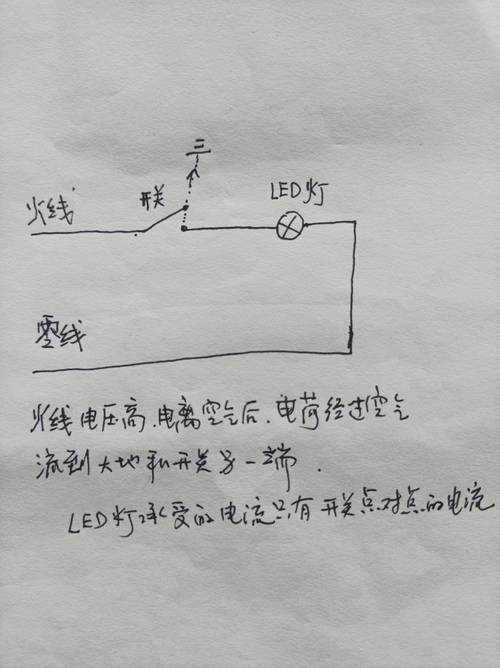 LED灯
火线
开关
零线
火线电压高,电离空气后,电荷经过空气
流到大地和开关另一端.
LED灯承受的电流只有开关点对点的电流